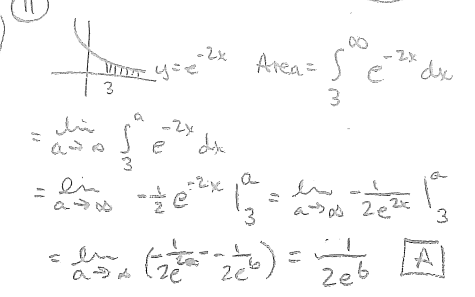 11
y=e^{-2x} Area = ∫_3^∞ e^{-2x} dx
3
= lim_{a→∞} ∫_3^a e^{-2x} dx
= lim_{a→∞} -1/2 e^{-2x} |_3^a = lim_{a→∞} -1/(2e^{2x}) |_3^a
= lim_{a→∞} (-1/(2e^{2a}) - -1/(2e^6)) = 1/(2e^6) A